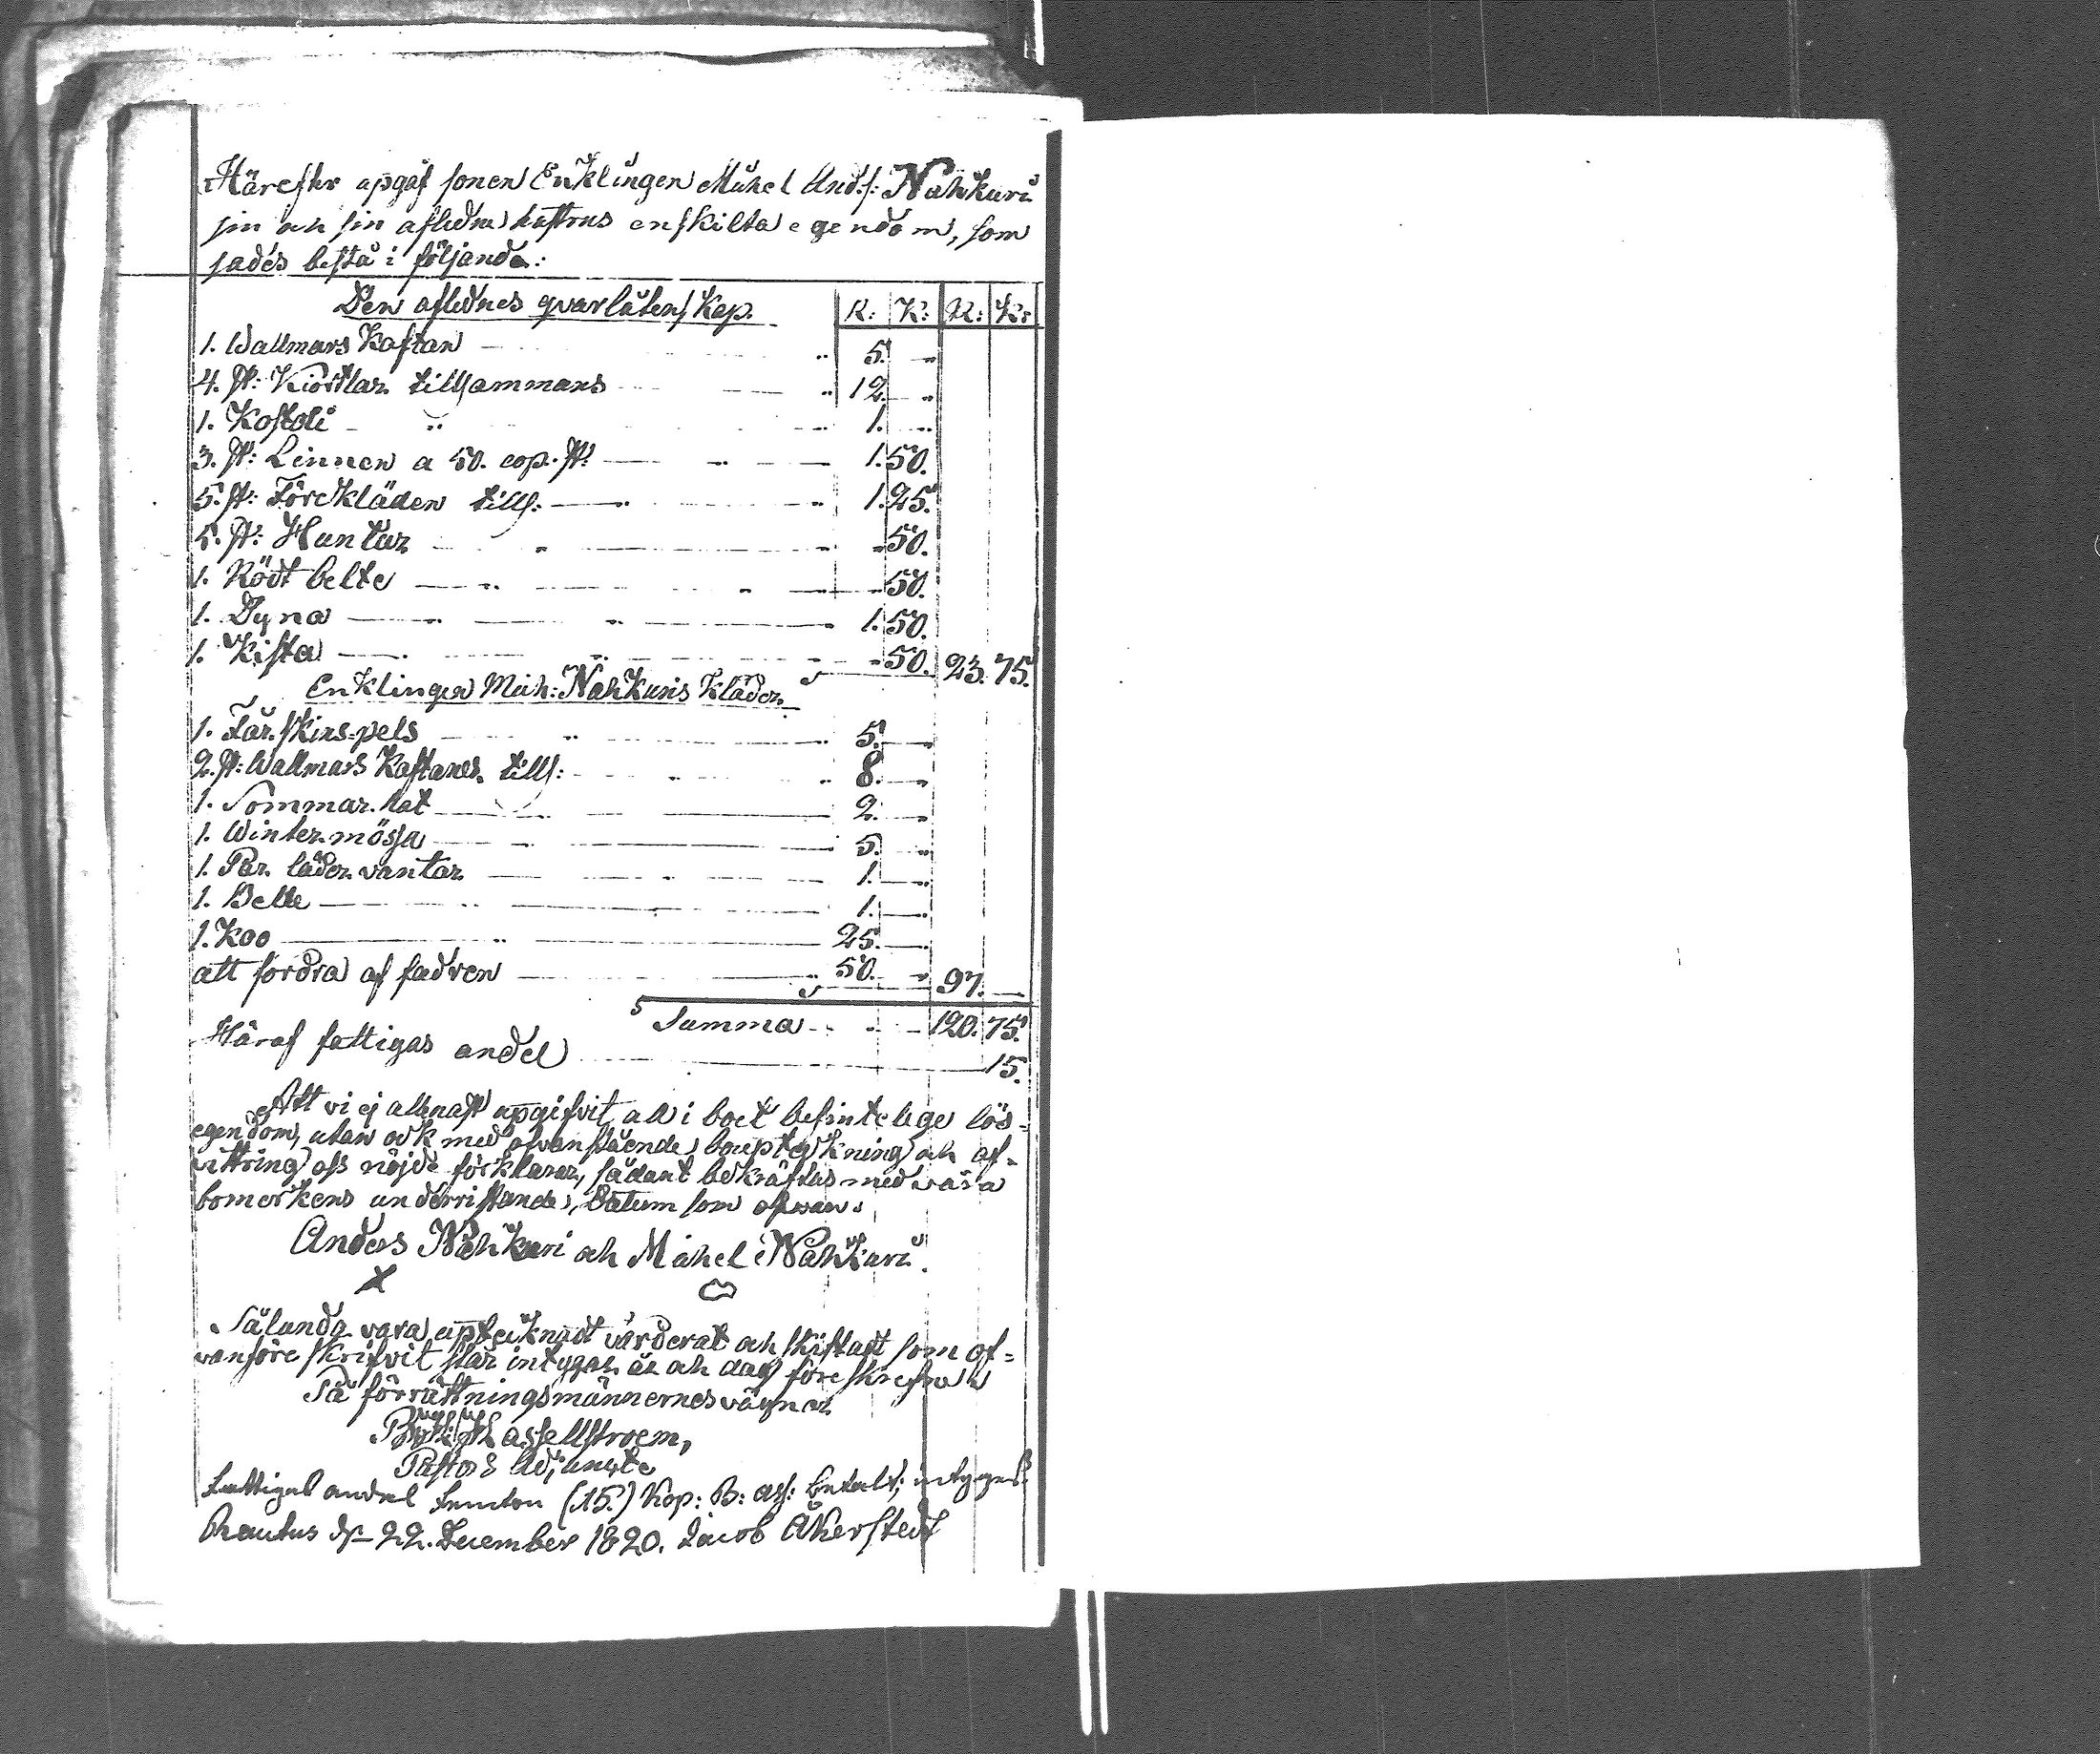 Härefter upgaf sonen Enklingen Mickel And:s: Nahkuri
sin och sin aflidna hustrus enskilta egendom, som
sades bestå i följande:
Den aflidnes qvarlåtenskap. R: K: R: K:
1. Wallmars Kaftan 5. "
4. St: Kiortlar tillsammans 12. "
1. Kostoli 1. "
3. St: Linnen a 50. cop. St: 1. 50.
5. St: Förekläden tills: 1. 25.
5. St: Huntur " 50.
1. Rödt belte " 50.
1. Dyna 1. 50.
1. Kista " 50. 23. 75.
Enklingen Mich: Nahkuris Kläder
1. Fårskins-pels 5. "
2. St: Wallmars Kaftaner tills: 8. "
1. Sommar hat 2. "
1. Winter mössa 5. "
1. Par läder vantar 1. "
1. Belte 1. "
1. Koo 25. "
att fordra af fadren 50. " 97. —
Summa 120. 75.
Häraf fattigas andel 15.
Att vi ej allenast upgifvit all i boet befintelige lös-
egendom, utan ock med ofvanstående bouptekning och af-
vittring oss nöjde förklarar, sådant bekräftas med våra
bomerkens underristande, Datum som ofvan.
Anders Nahkuri och Mickel Nahkuri.
X
Sålunda vara upteiknadt värderat och skiftadt som of-
vanföre skrifvit står intygas år och dag föreskrefne
På förrättningsmännernes vägnar
Hassellstroem,
Pastors Adjuncte
Fattigas andel femton (15.) Kop: B: ass: betalt; intygas
Rautus d: 22. December 1820. Jacob Åkerstedt